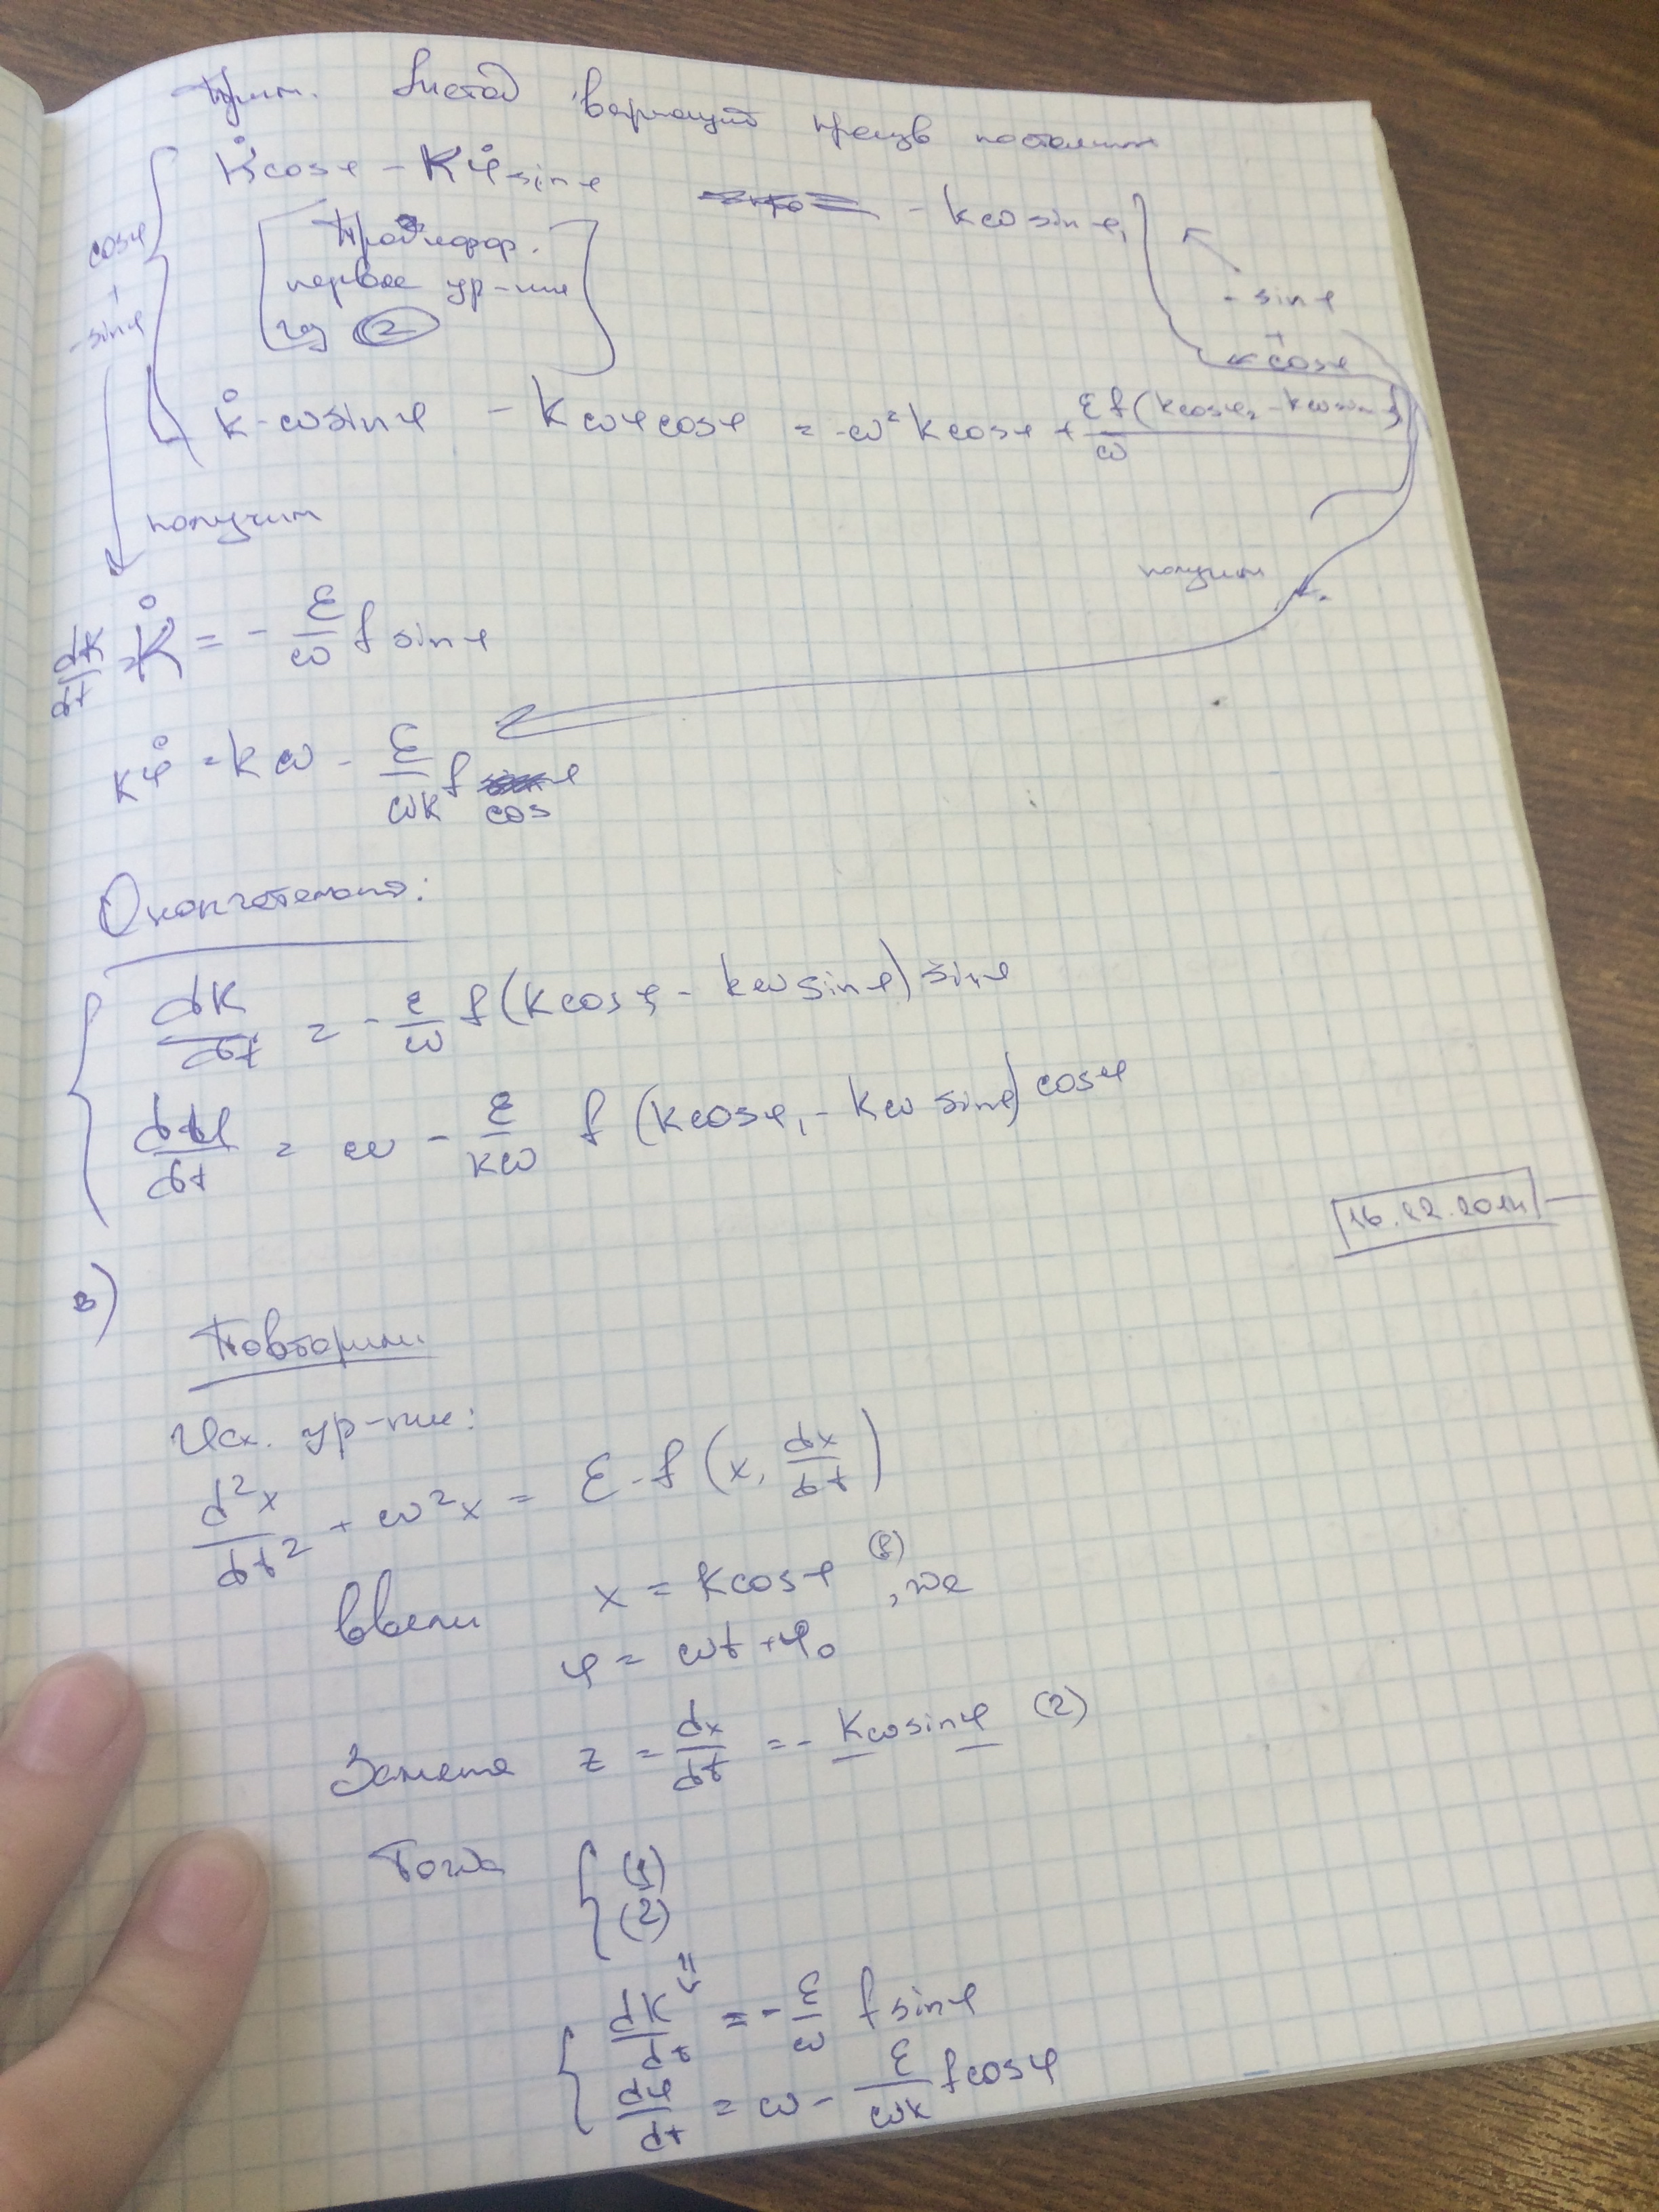 Прим. Метод вариаций произв постоянн
K̊cosφ – Kφ̊sinφ – kωsinφ,
cosφ + -sinφ
[ Продифф. первое ур-ние из (2) ]
-sinφ + cosφ
k̊·ωsinφ – kωφcosφ = -ω²kcosφ + εf(kcosφ, -kωsinφ)/ω
получим
получим
dK/dt = K̊ = – ε/ω f sinφ
kφ̊ = kω – ε/ωk f cos φ
Окончательно:
dK/dt = – ε/ω f(kcosφ, – kωsinφ) sinφ
dφ/dt = ω – ε/kω f(kcosφ, – kω sinφ) cosφ
16.12.2014
в)
Повторим
Исх. ур-ние:
d²x/dt² + ω²x = ε·f(x, dx/dt)
Ввели x = kcosφ (1), где
φ = ωt + φ₀
Замена z = dx/dt = – kωsinφ (2)
Тогда { (1)
(2)
dk/dt = – ε/ω f sinφ
dφ/dt = ω – ε/ωk f cosφ